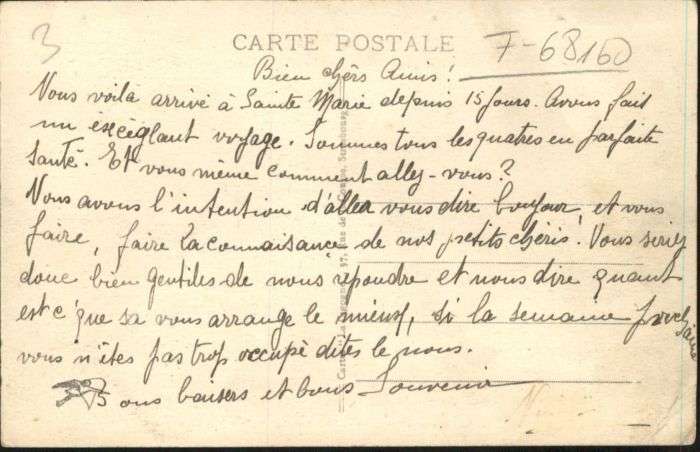 3
CARTE POSTALE
F-68160
Bien chèrs Amis!
Nous voila arrivé à Sainte Marie depuis 15 jours. Avons fait
un excéglant voyage. Sommes tous les quatres en parfaite
Santé. Et vous même comment allez-vous?
Nous avons l'intention d'aller vous dire bonjour, et vous
faire, faire la connaisance de nos petits chéris. Vous seriez
donc bien gentiles de nous répondre et nous dire quant
est c'que sa vous arrange le mieux, si la semaine prochaine
vous n'êtes pas trop occupè dites le nous.
Bons baisers et bons Souvenir